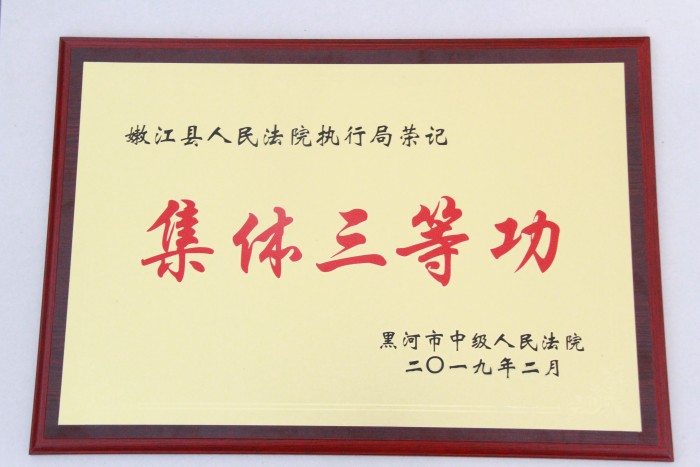 嫩江县人民法院执行局荣记
集体三等功
黑河市中级人民法院
二〇一九年二月